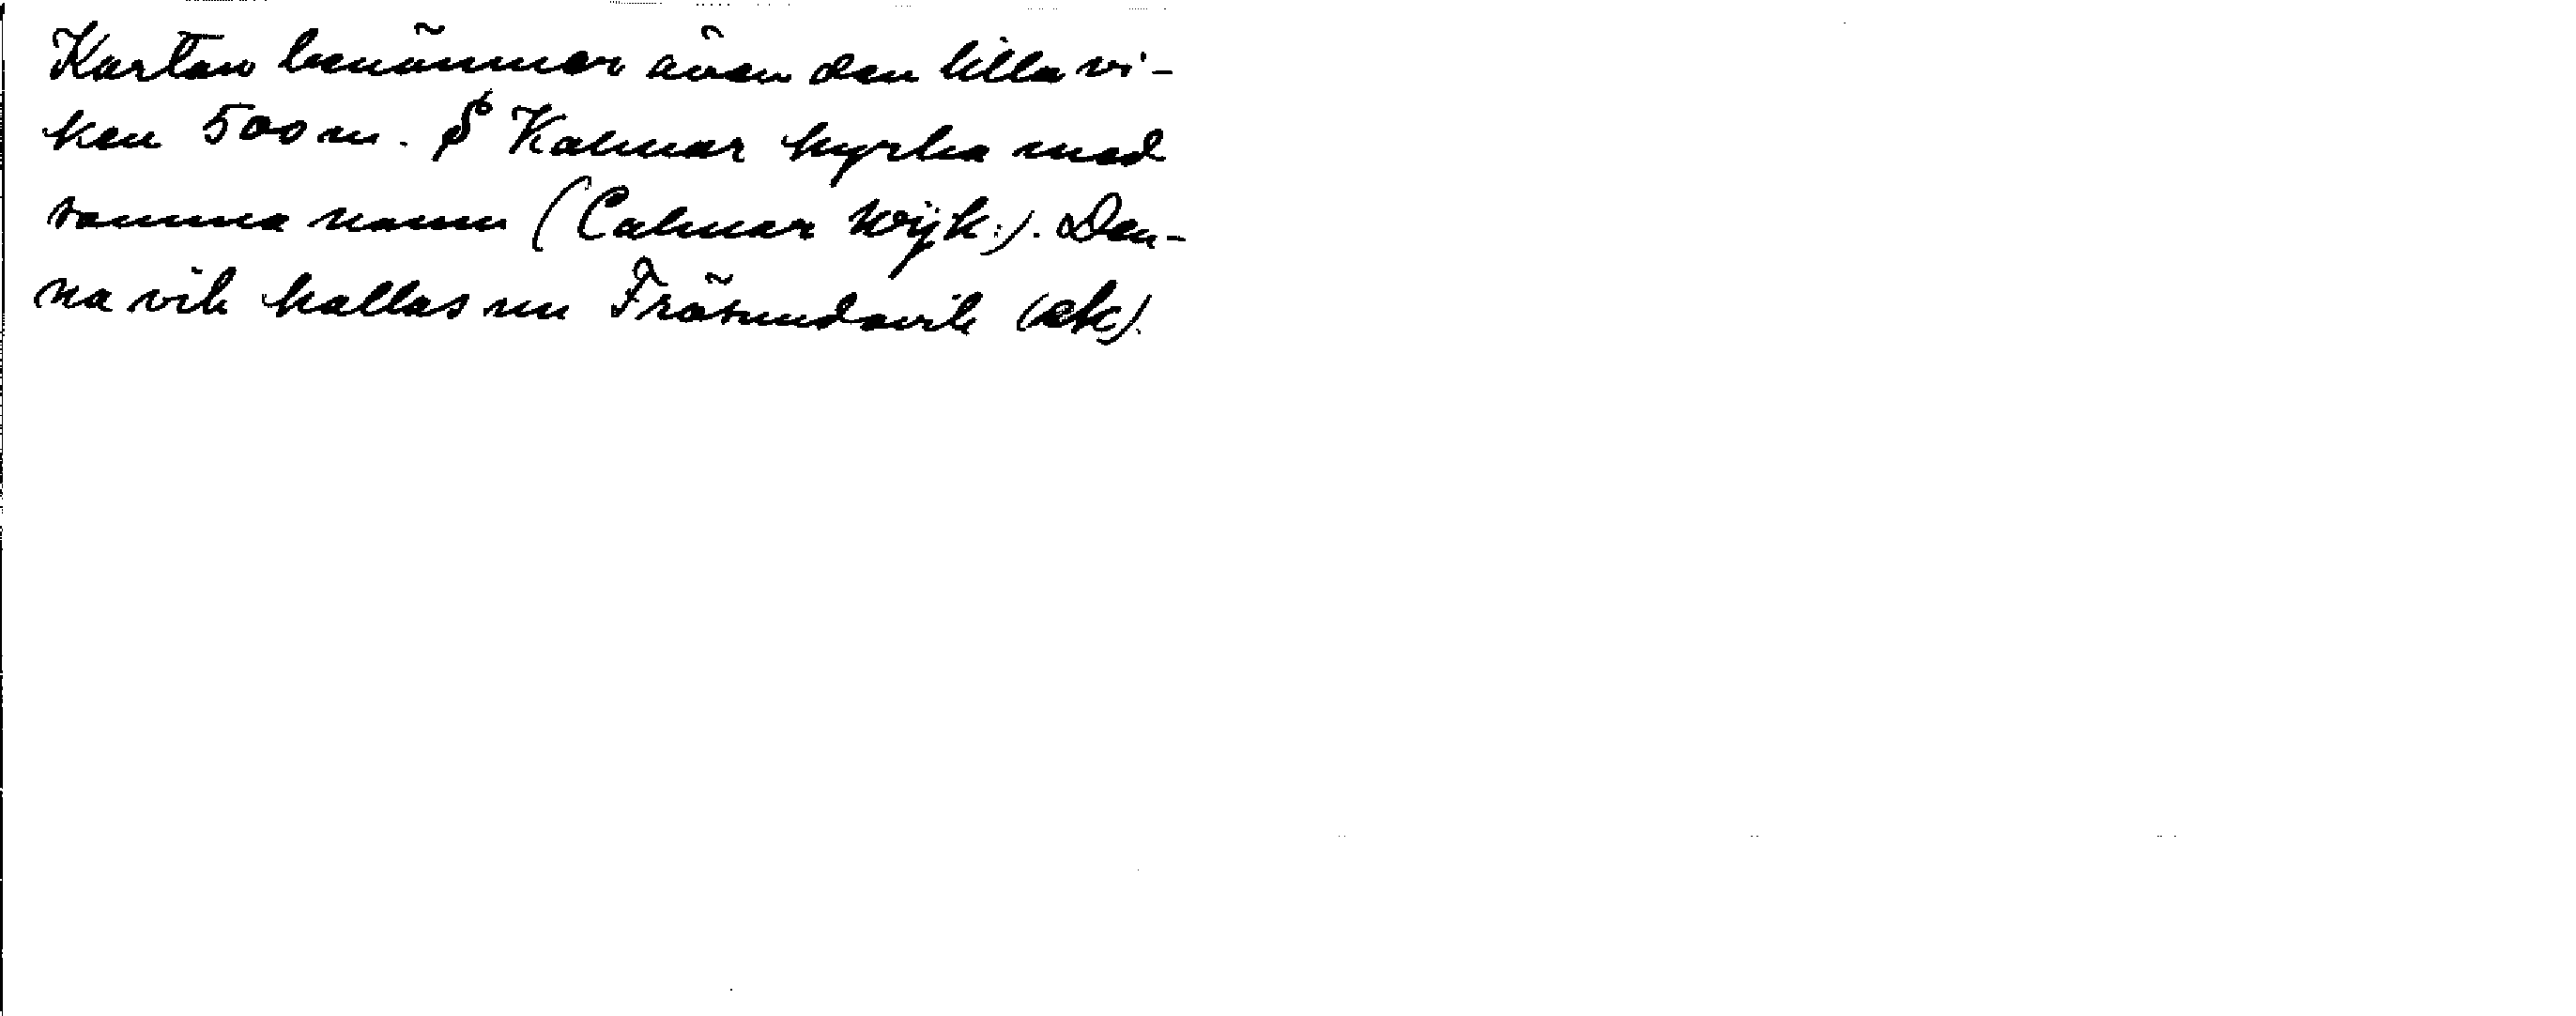 Kartan benämner även den lilla vi-
ken 500 m. S Kalmar kyrka med
samma namn (Calmar Wijk:). Den-
na vik kallas nu Frösundavik (ek).